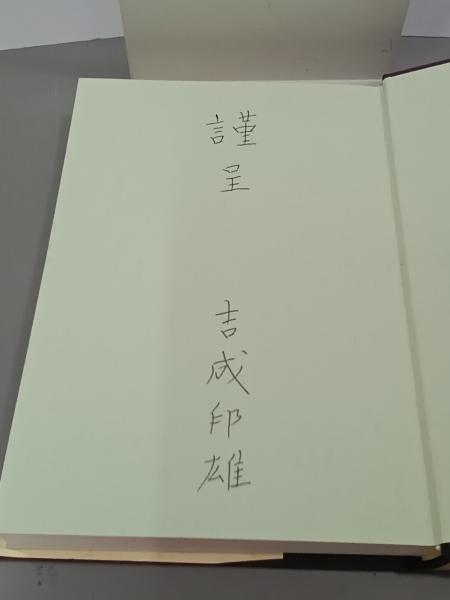 謹呈
吉成印雄